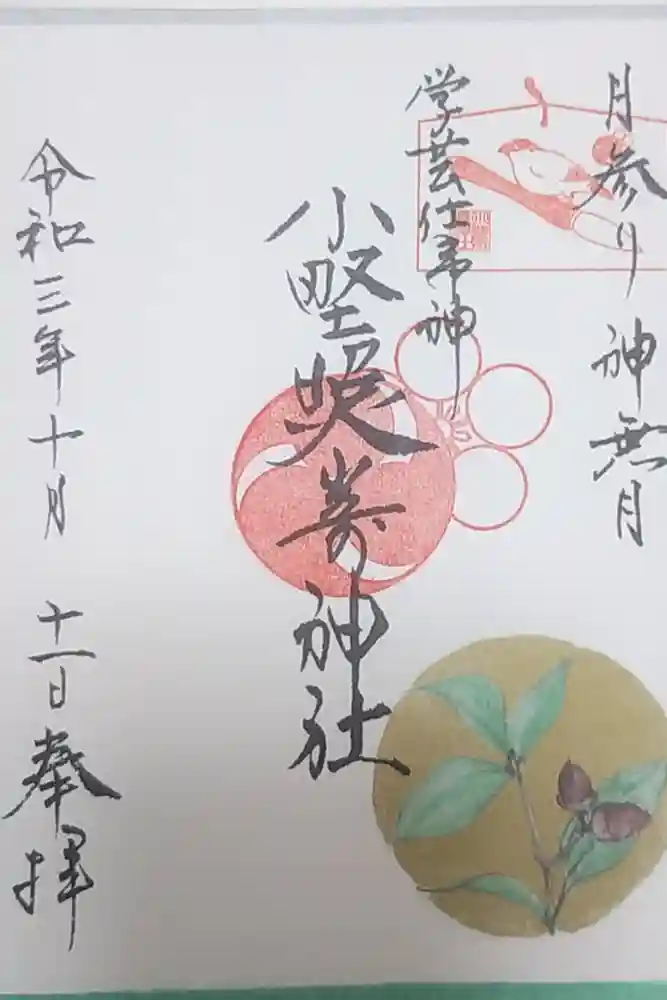 月参り 神無月
学芸仕事神
小野照崎神社
令和三年十月 十一日 奉拝